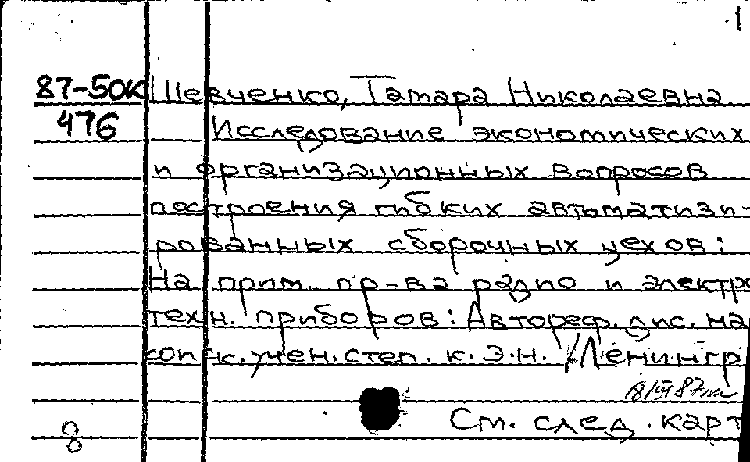 1
87-50К Шевченко, Тамара Николаевна
476 Исследование экономических
и организационных вопросов
построения гибких автоматизи-
рованных сборочных цехов:
На прим. пр-ва радио и электро
техн. приборов: Автореф. дис. на
соиск. учен. степ. к. э. н. / Ленингр
См. след. карт